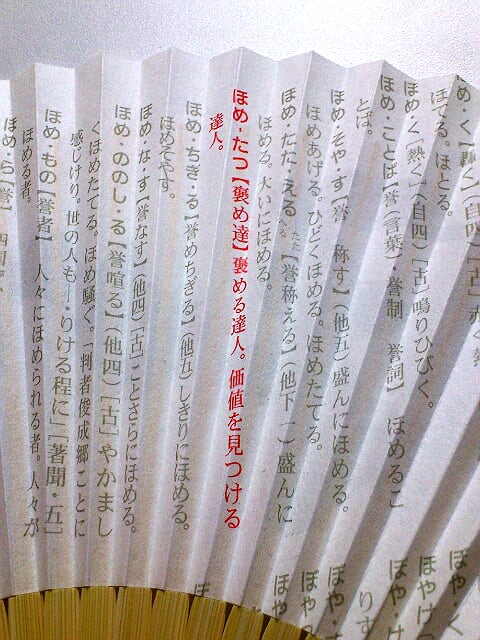 ほてる。ほとる。
ほめ・く【熱く】(自四)〔古〕鳴りひびく。
ほめ・ことば【誉(言葉)・誉制 誉詞】 ほめるこ
とば。
ほめ・そや・す【誉 称す】(他五)盛んにほめる。
ほめあげる。ひどくほめる。ほめたてる。
ほめ・たた・える【誉称える】(他下一)盛んに
ほめる。大いにほめる。
ほめ-たつ【褒め達】褒める達人。価値を見つける
達人。
ほめ・ちぎ・る【誉めちぎる】(他五)しきりにほめる。
ほめそやす。
ほめ・な・す【誉なす】(他四)〔古〕ことさらにほめる。
ほめ・ののし・る【誉喧る】(他四)〔古〕やかまし
くほめたてる。ほめ騒ぐ。「判者俊成郷ことに
感じけり。世の人も―・りける程に」[著聞・五]
ほめ・もの【誉者】 人々にほめられる者。人々が
ほめる者。